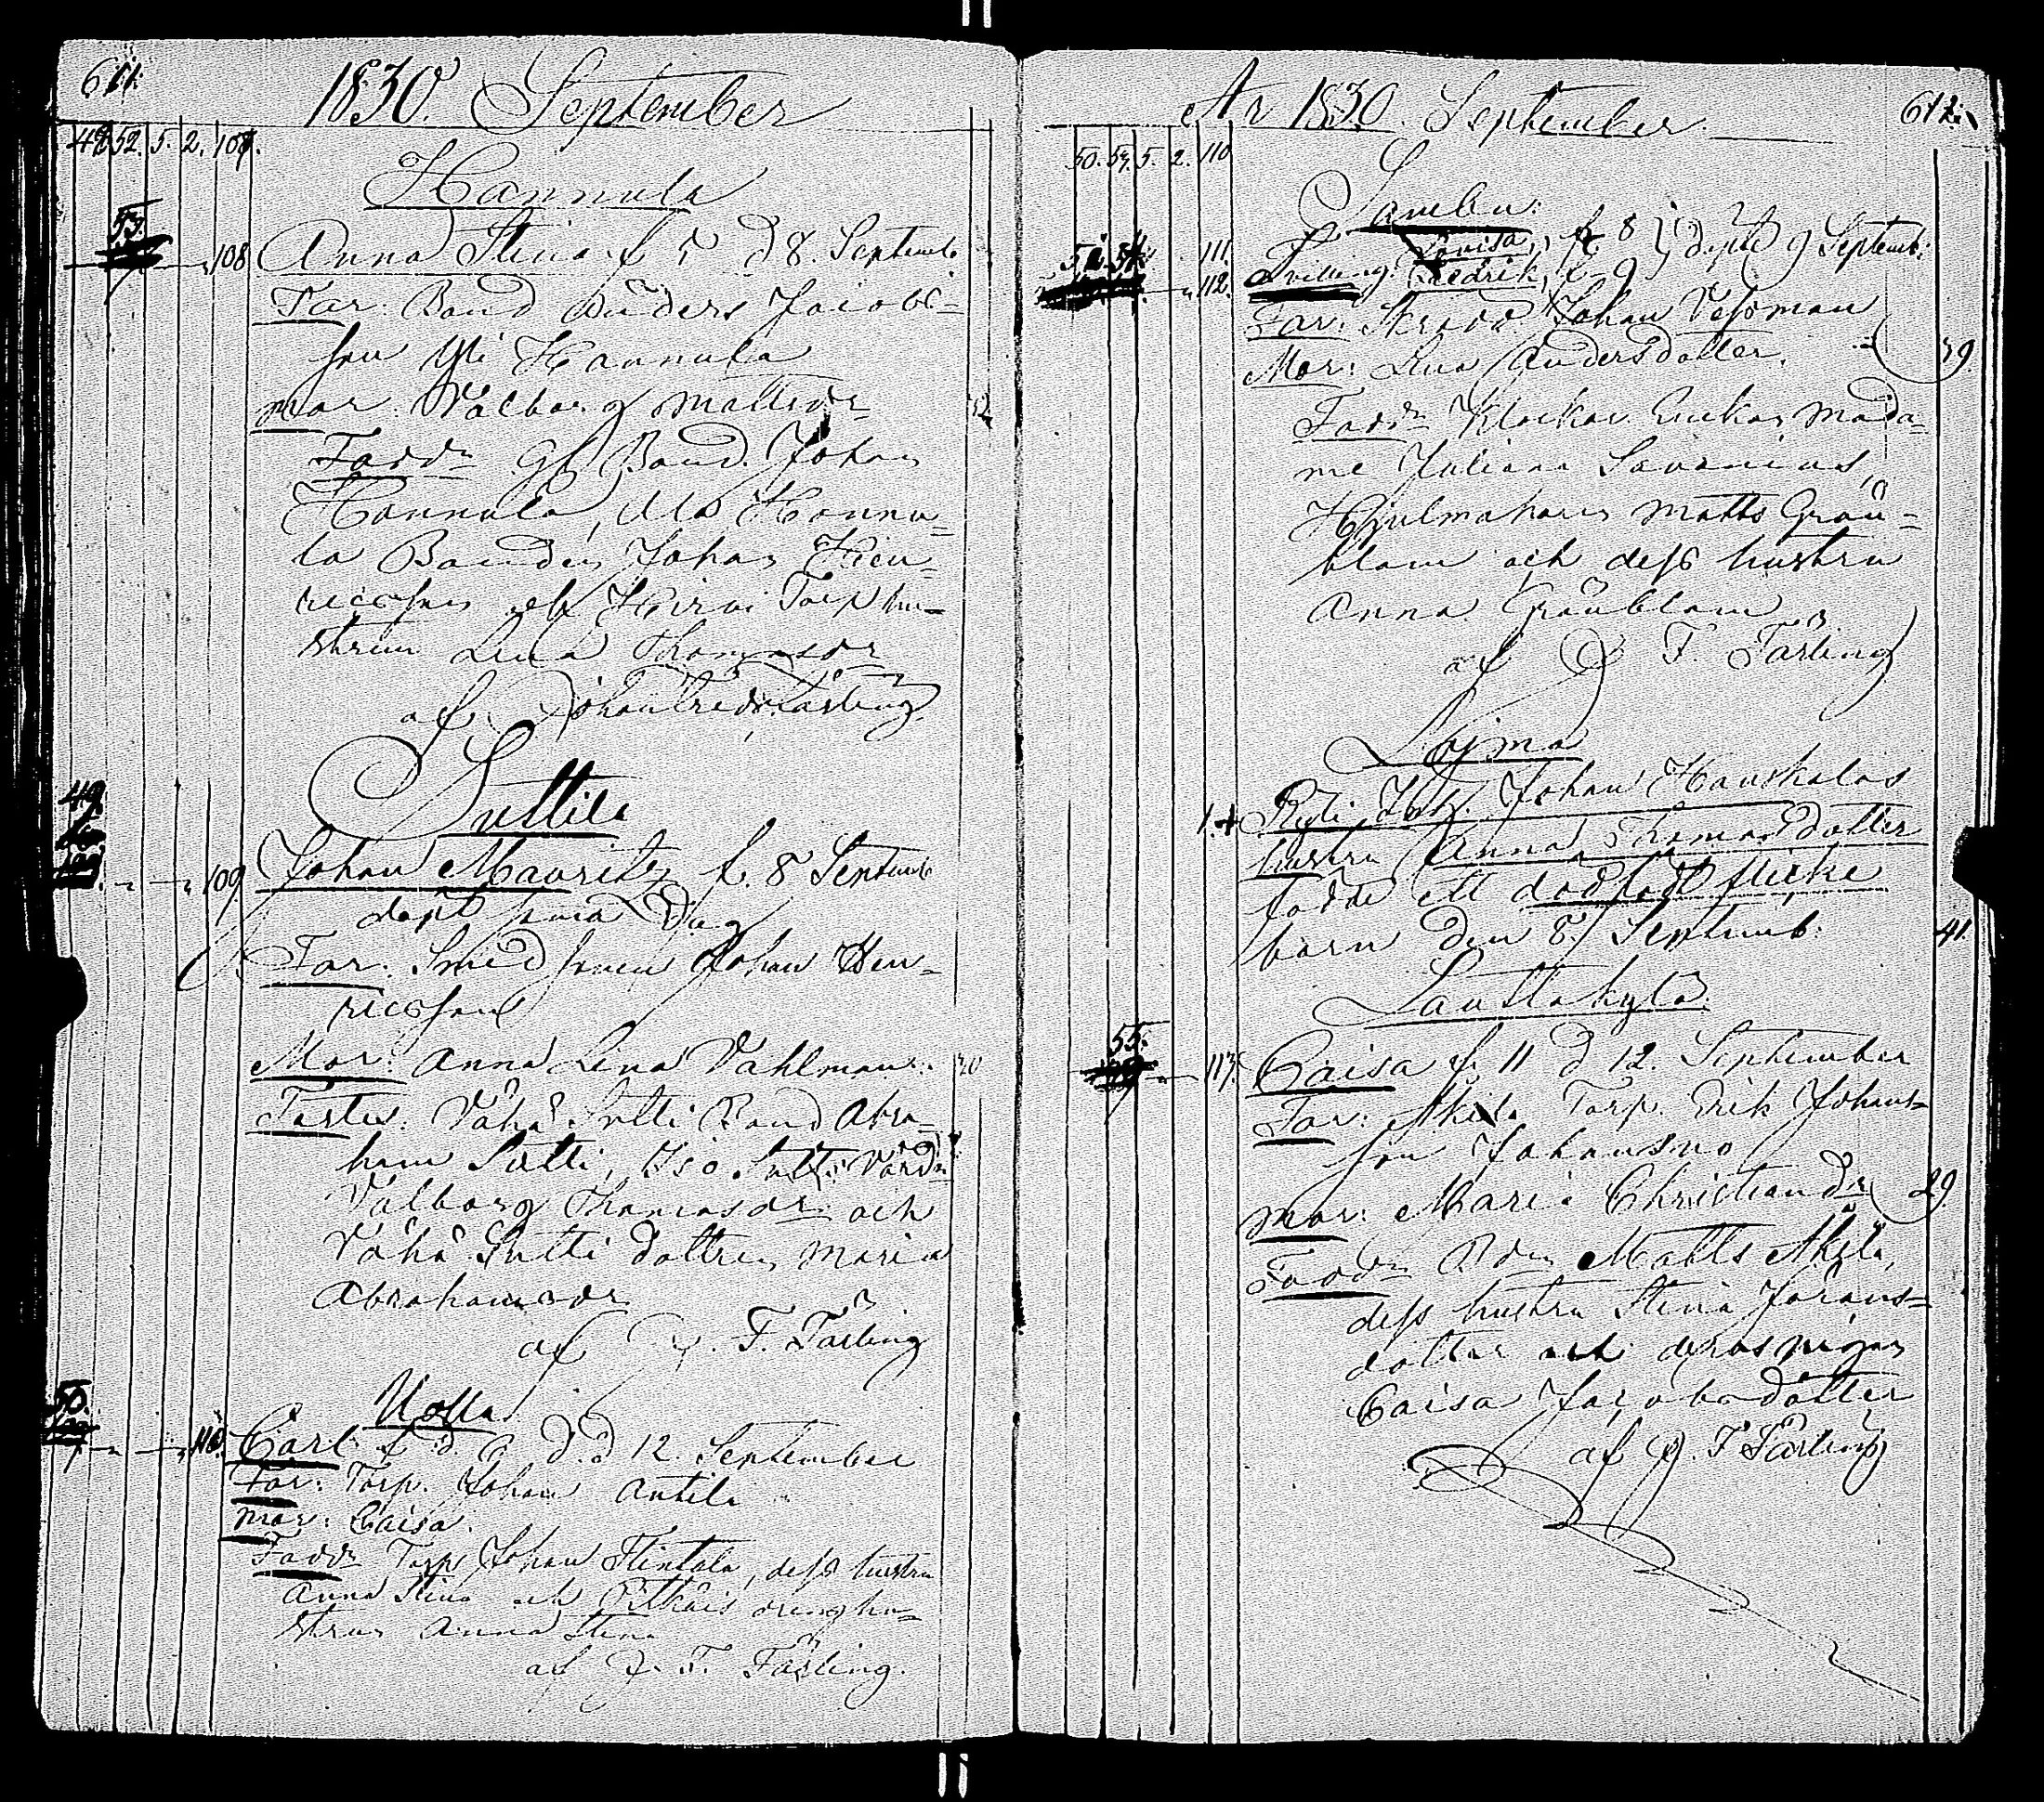 611.
1830. September
48 52. 5. 2. 107.
Hannula
53.
108 Anna Stina f. 5 d 8. Septemb
Far: Bond Anders Jacobs-
son Yli Hannula
mar. Valborg Mattsdr 32
Faddr Gl Bond. Johan
Hannula, Ala Hannu-
la Bonden Johan Hen-
ricsson och Hirvi Torp hu-
strun Lena Thomasdr
af Johan Fredr Färling.
Suttila
49.
109 Johan Mauritz f. 8 Septemb
döpt sama Dag
Far. Smed sven Johan Hen-
ricsson
Mor: Anna Lena Vahlman. 30
Testes: Vähä Sutti Bond Abra-
ham Sutti, Iso Sutti Värdn
Valborg Thomasdr och
Vähä Sutti dottren Maria
Abrahamsdr
af J. F. Färling
50.
110. Carl f. d 6 d. d 12. September
Far: Torp. Johan Antila
mor: Caisa.
Faddr Torp Johan Flintala, dess hustru
Anna Stina och dreng hu-
strun Anna Stina
af J. F. Färling.
År 1830. September 612.
50. 53. 5. 2. 110
Sambu:
51. 54. 111. Lovisa, f. 8 döpte 9 Septemb:
112. Tvilling. Fredrik, f. 9
Far: Skrädd. Johan Vessman
Mor: Lena Andersdotter. 39.
Faddr Klockar Enkan Mada-
me Juliana Savenius,
Hjulmakarn Matts Grön-
blom och dess hustru
Anna Grönblom
af J. F. Färling
Loima
1. + Kyli Johan Hauskalas
hustru Anna Thomasdotter
födde ett dödfödt flicke
barn den 8. Septemb: 41.
Lauttakylä
55.
113. Caisa f. 11 d 12. September
Far: Skila Torp. Erik Johans-
son Johansmo
mor: Maria Christiansdr 29.
Faddr Bdn Matts Skila,
dess hustru Stina Jörans-
dotter och deras pigan
Caisa Jacobsdotter
af J. F. Färling